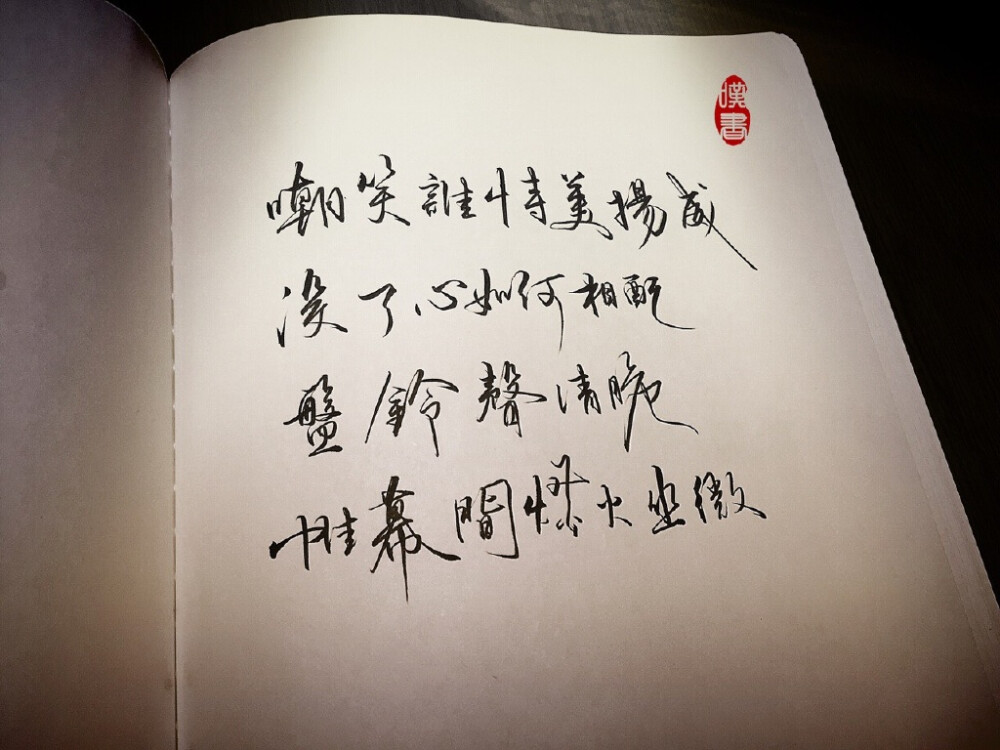 嘆書
嘲笑誰恃美揚威
沒了心如何相配
盤鈴聲清脆
帷幕間燈火幽微